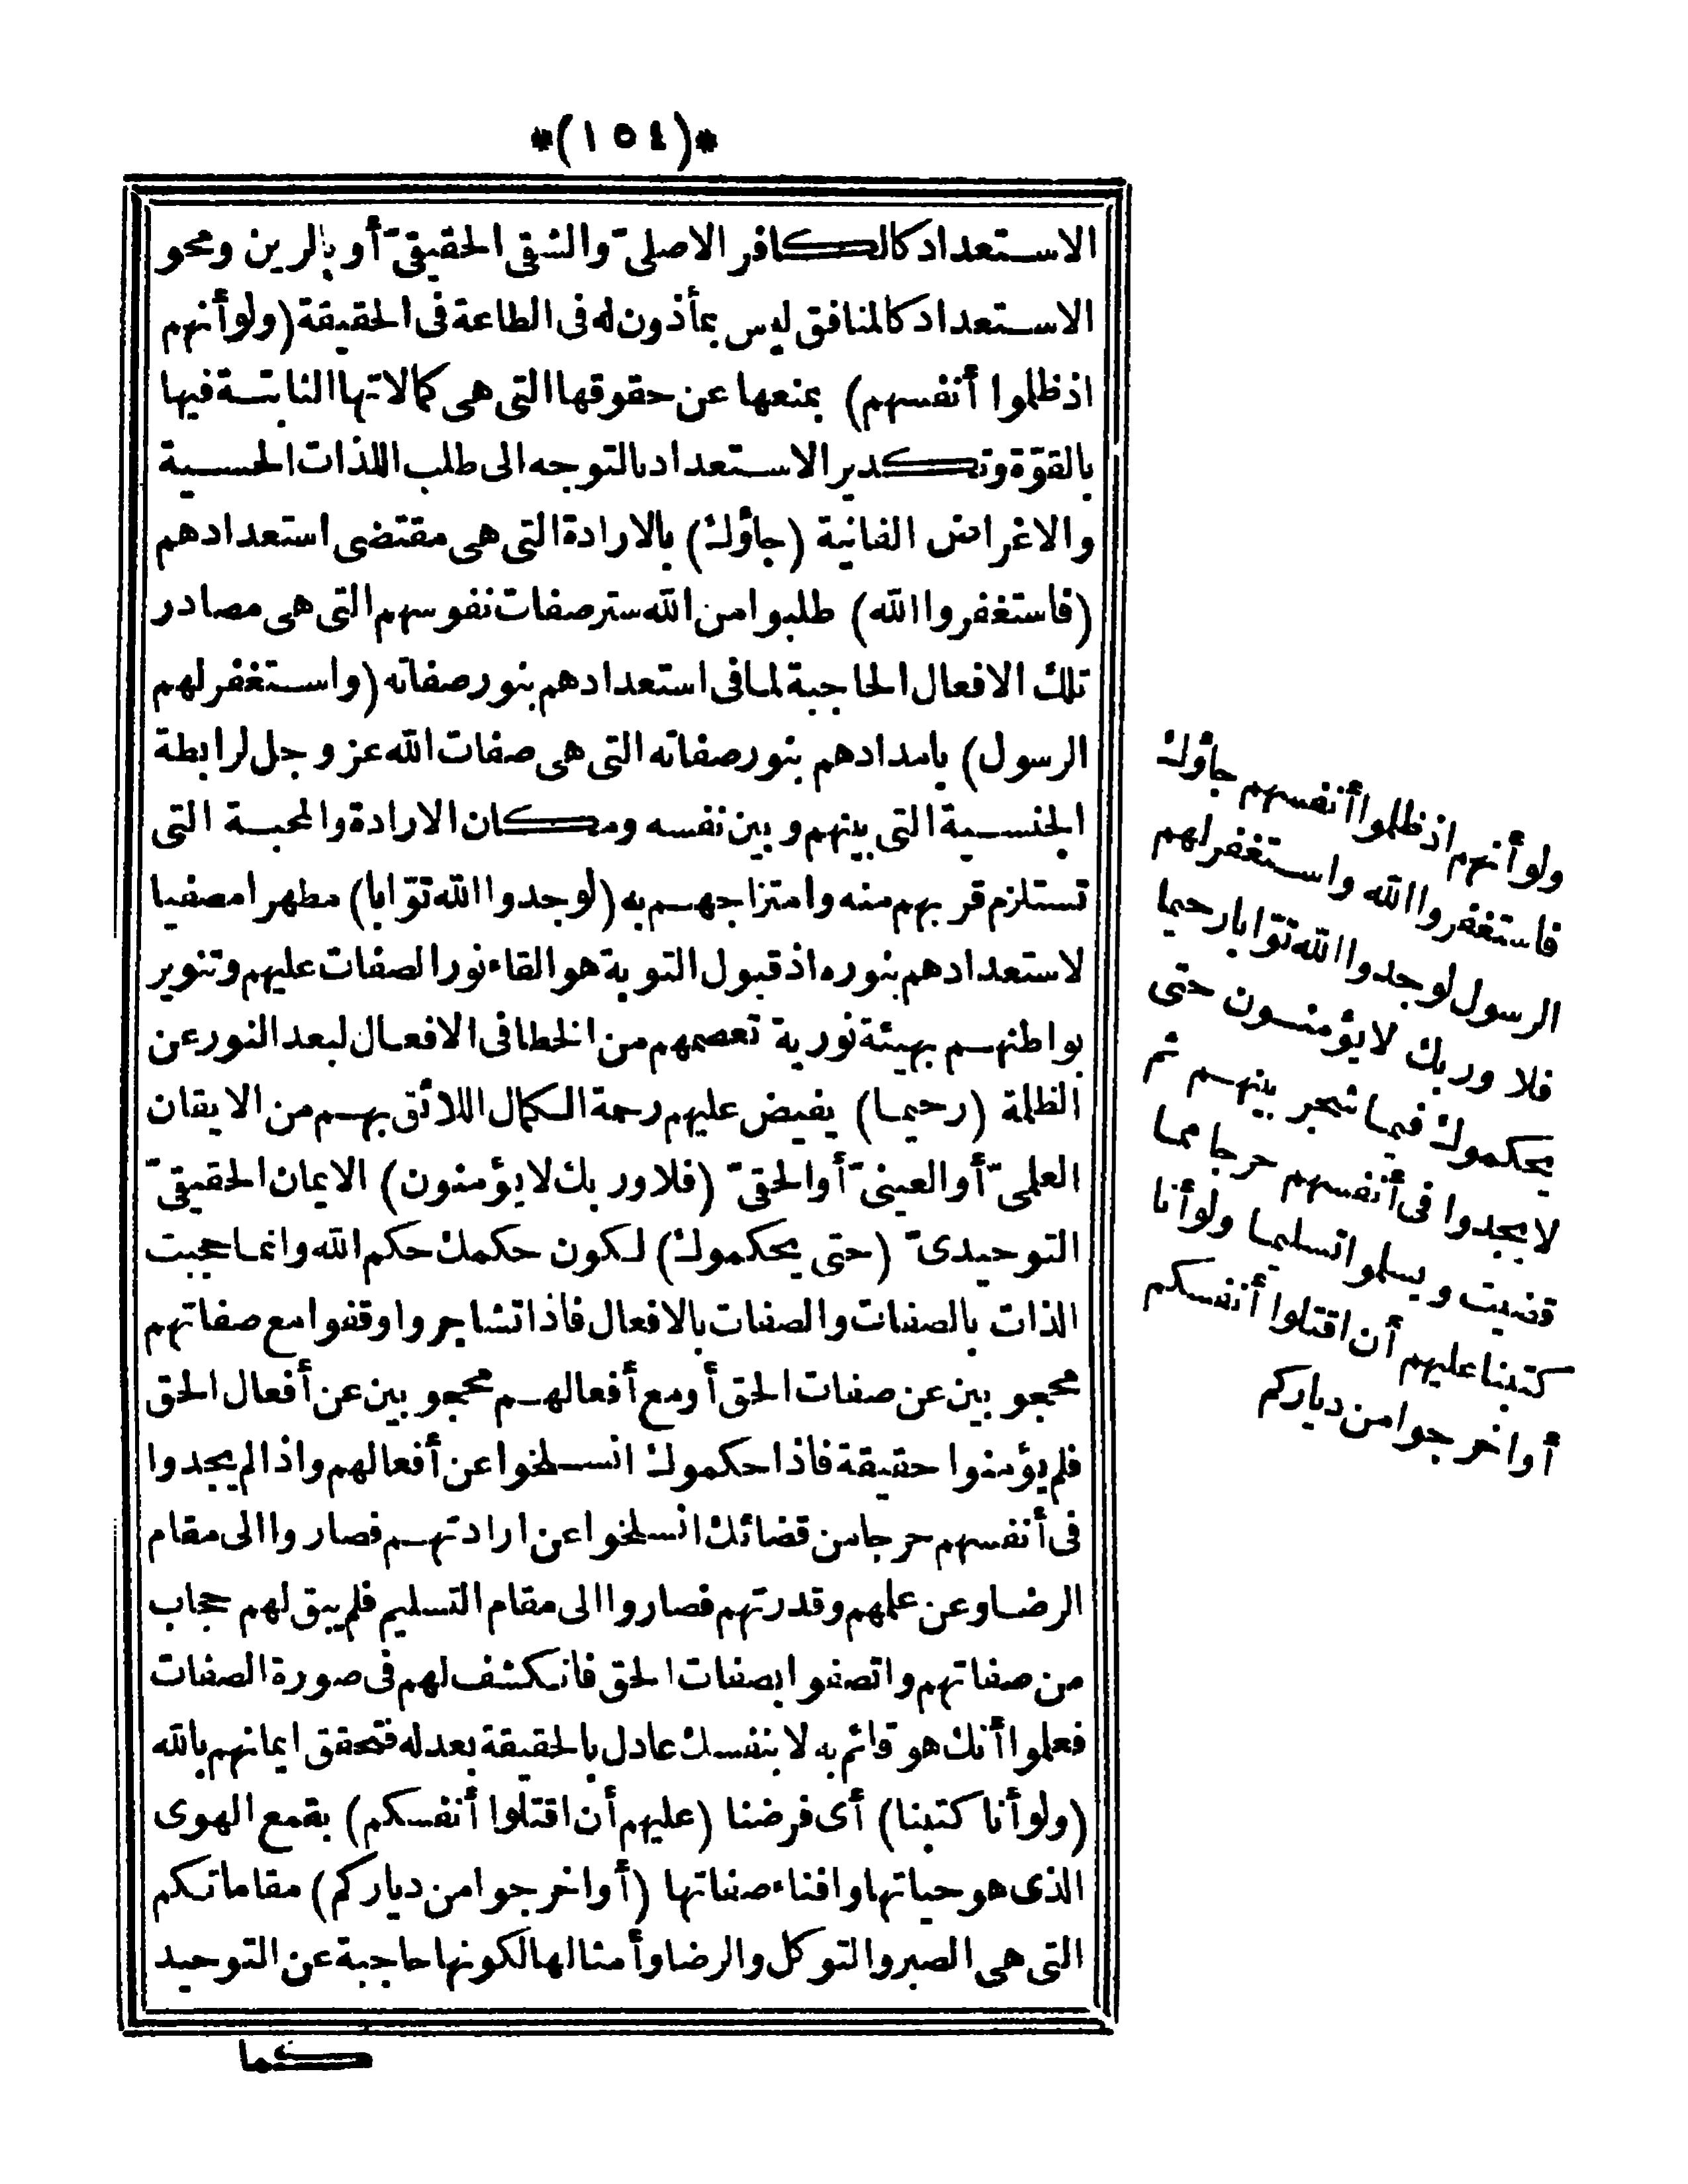 *(١٥٤)*
الاستعداد كالكافر الاصلىّ والشقى الحقيقىّ أو بالرين ومحو
الاستعداد كالمنافق ليس بمأذون له فى الطاعة فى الحقيقة (ولو أنهم
اذ ظلموا أنفسهم) بمنعها عن حقوقها التى هى كمالاتها الثابتة فيها
بالقوّة وتكدير الاستعداد بالتوجه الى طلب اللذات الحسية
والاغراض الفانية (جاؤك) بالارادة التى هى مقتضى استعدادهم
(فاستغفروا الله) طلبوا من الله ستر صفات نفوسهم التى هى مصادر
تلك الافعال الحاجبة لما فى استعدادهم بنور صفاته (واستغفر لهم
الرسول) بامدادهم بنور صفاته التى هى صفات الله عز وجل لرابطة
الجنسية التى بينهم وبين نفسه ومكان الارادة والمحبة التى
تستلزم قربهم منه وامتزاجهم به (لوجدوا الله توّابا) مطهرا مصفيا
لاستعدادهم بنوره اذ قبول التوبة هو القاء نور الصفات عليهم وتنوير
بواطنهم بهيئة نورية تعصمهم من الخطا فى الافعال لبعد النور عن
الظلمة (رحيما) يفيض عليهم رحمة الكمال اللائق بهم من الايقان
العلمىّ أو العينىّ أو الحقىّ (فلا وربك لا يؤمنون) الايمان الحقيقىّ
التوحيدىّ (حتى يحكموك) لكون حكمك حكم الله وانما حجبت
الذات بالصفات والصفات بالافعال فاذا تشاجروا وقفوا مع صفاتهم
محجوبين عن صفات الحق أو مع أفعالهم محجوبين عن أفعال الحق
فلم يؤمنوا حقيقة فاذا حكموك انسلخوا عن أفعالهم واذا لم يجدوا
فى أنفسهم حرجا من قضائك انسلخوا عن ارادتهم فصاروا الى مقام
الرضا وعن علمهم وقدرتهم فصاروا الى مقام التسليم فلم يبق لهم حجاب
من صفاتهم واتصفوا بصفات الحق فانكشف لهم فى صورة الصفات
فعلموا أنك هو قائم به لا بنفسك عادل بالحقيقة بعدله فتحقق ايمانهم بالله
(ولو أنا كتبنا) أى فرضنا (عليهم أن اقتلوا أنفسكم) بقمع الهوى
الذى هو حياتها وافناء صفاتها (أو اخرجوا من دياركم) مقاماتكم
التى هى الصبر والتوكل والرضا وأمثالها لكونها حاجبة عن التوحيد
كما
ولو أنهم اذ ظلموا أنفسهم جاؤك
فاستغفروا الله واستغفر لهم
الرسول لوجدوا الله توّابا رحيما
فلا وربك لا يؤمنون حتى
يحكموك فيما شجر بينهم ثم
لا يجدوا فى أنفسهم حرجا مما
قضيت ويسلموا تسليما ولو أنا
كتبنا عليهم أن اقتلوا أنفسكم
أو اخرجوا من دياركم